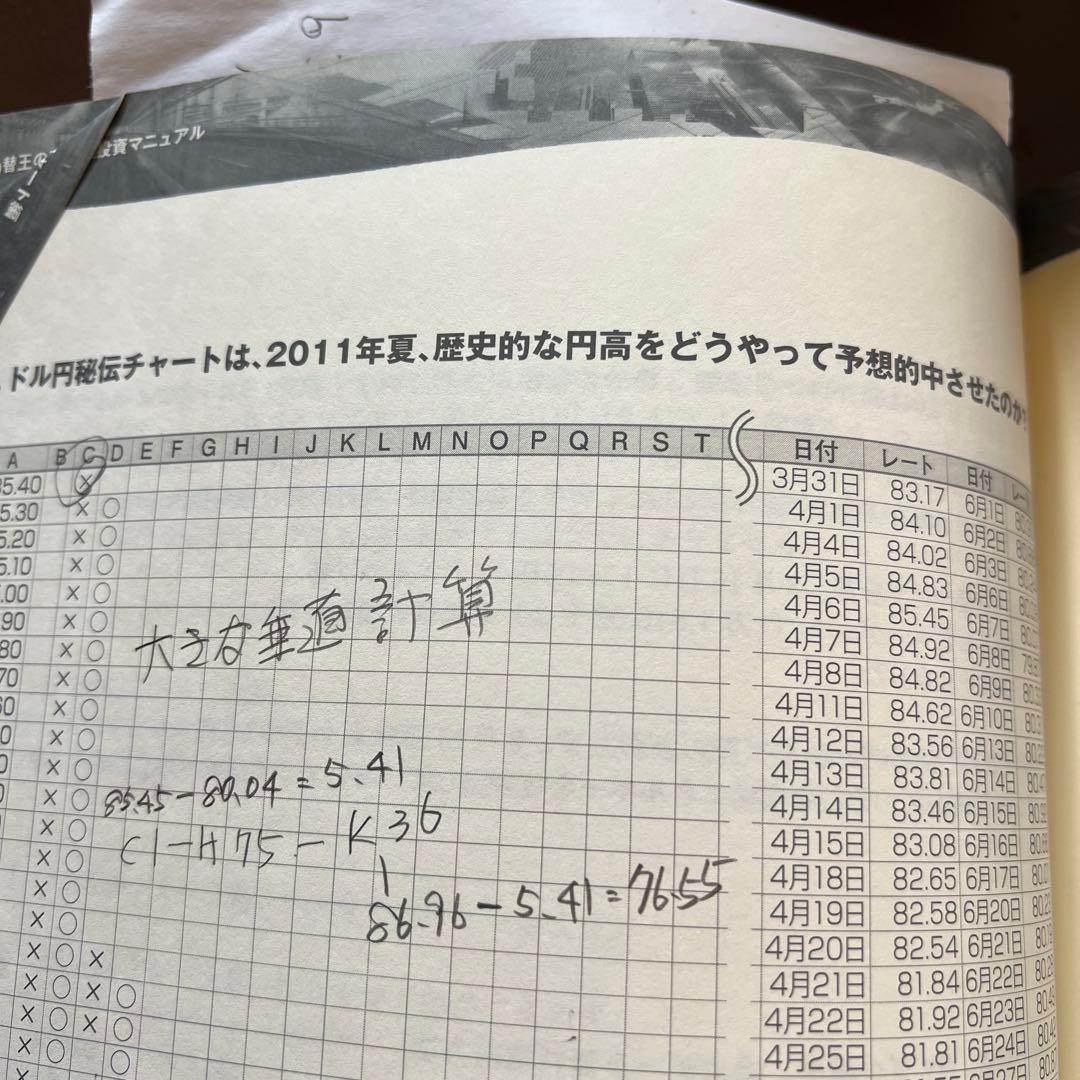 投資マニュアル
ドル円秘伝チャートは、2011年夏、歴史的な円高をどうやって予想的中させたのか
A B C D E F G H I J K L M N O P Q R S T 日付 レート 日付
5.40 × 3月31日 83.17 6月1日
5.30 × ○ 4月1日 84.10 6月2日
5.20 × ○ 4月4日 84.02 6月3日
5.10 × ○ 4月5日 84.83 6月6日
.00 × ○ 4月6日 85.45 6月7日
90 × ○ 4月7日 84.92 6月8日
80 × ○ 4月8日 84.82 6月9日
70 × ○ 4月11日 84.62 6月10日
60 × ○ 4月12日 83.56 6月13日
× ○ 4月13日 83.81 6月14日
× ○ 4月14日 83.46 6月15日
× ○ 4月15日 83.08 6月16日
× ○ 4月18日 82.65 6月17日
× ○ 4月19日 82.58 6月20日
× ○ 4月20日 82.54 6月21日
× ○ 4月21日 81.84 6月22日
× ○ × 4月22日 81.92 6月23日
× ○ × ○ 4月25日 81.81 6月24日
× ○ × ○
× ○ ○
大きな垂直計算
85.45-80.04=5.41
C1-H75-K36
86.96-5.41=76.55